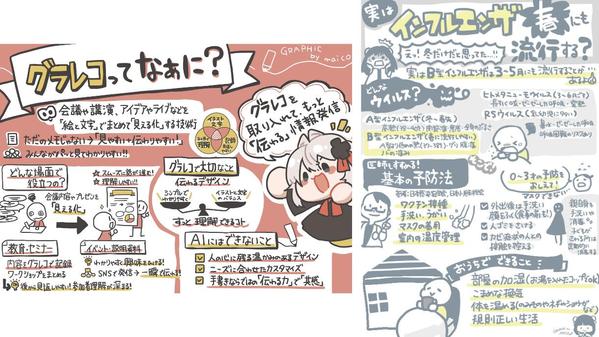 グラレコってなぁに?
GRAPHIC
by maico
会議や講演、アイデアやライブなどを
"絵と文字"でまとめて「見える化」する技術
ただのメモじゃない?「見やすい+伝わりやすい」
みんながパッと見てわかりやすい!!
イラスト
文字
グラレコを
取り入れて、もっと
「伝わる」情報発信
どんな場面で
役立つの?
スムーズに話が進む!
理解しやすい!!
会議内容やプレゼンを
見える化
グラレコで大切なこと
伝わるデザイン
シンプルで
わかりやすく
イラストと文字
のバランス
ずっと理解できるコト
AIにはできないこと
人の心に残る温かみのあるデザイン
ニーズに合わせたカスタマイズ
手書きならではの"伝わる力"で"共感"
教育・セミナー
内容をグラレコで記録
ワークショップをまとめる
後から見返しやすい!参加者理解が深まる!
イベント・説明資料
わかりやすく興味をひける!
SNSで発信→一瞬で伝わる!
実は
インフルエンザ
春にも
流行する?
えっ!冬だけだと思ってた…!!
実はB型インフルエンザは3-5月にも流行することが
どんな
ウイルス?
A型インフルエンザ(冬~春先)
B型インフルエンザ(春に流行しやすい)
ヒトメタニューモウイルス(3~6月ごろ)
RSウイルス
医師もすすめる!
基本の予防法
ワクチン接種
手洗い、うがい
マスクの着用
室内の温度管理
0~3才の予防を
おしえて!
マスクできない
外出後は手洗い
人ごみをさける
おうちでできること:
部屋の加湿
こまめな換気
体を温める
規則正しい生活